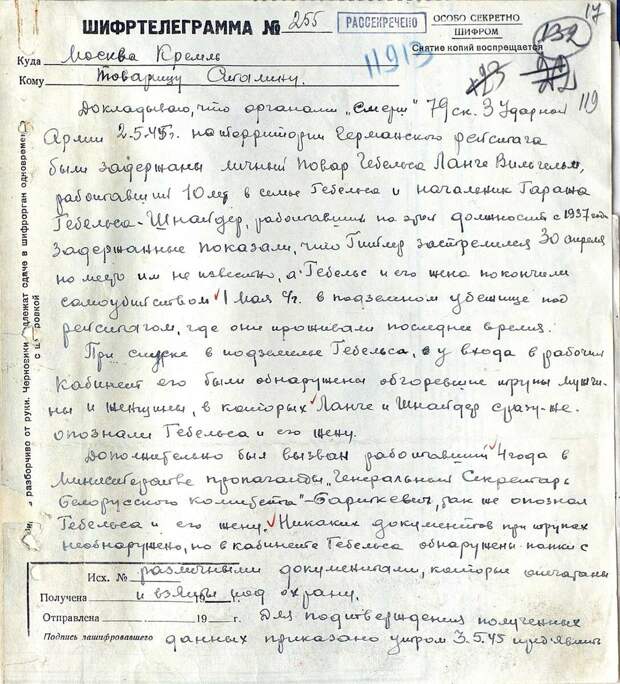 17
ШИФРТЕЛЕГРАММА № 255
РАССЕКРЕЧЕНО
ОСОБО СЕКРЕТНО
ШИФРОМ
Снятие копий воспрещается
132
Куда Москва Кремль
11913
Кому Товарищу Сталину.
119
Докладываю, что органами "Смерш" 79 ск. 3 Ударной
Армии 2.5.45г. на территории Германского рейстага
были задержаны личный повар Гебельса Ланге Вильгельм,
работавший 10 лет в семье Гебельса и начальник гаража
Гебельса-Шнайдер, работавший на этой должности с 1937 года
Задержанные показали, что Гитлер застрелился 30 апреля
но место им не известно, а Гебельс и его жена покончили
самоубийством 1 мая с/г. в подземном убежище под
рейстагом, где они проживали последнее время.
При спуске в подземелье Гебельса, у входа в рабочий
кабинет его были обнаружены обгоревшие трупы мужчи-
ны и женщины, в которых Ланге и Шнайдер сразу-же
опознали Гебельса и его жену.
Дополнительно был вызван работавший 4 года в
Министерстве пропаганды "Генеральный Секретарь
Белорусского комитета"- так же опознал
Гебельса и его жену. Никаких документов при трупах
необнаружено, но в кабинете Гебельса обнаружены папки с
различными документами, которые опечатаны
и взяты под охрану.
Для подтверждения полученных
данных приказано утром 3.5.45 предъявить
Исх. №
Получена 19 г.
Отправлена 19 г.
Подпись зашифровавшего
разборчиво от руки. Черновики надлежат сдаче в шифрорган одновремен